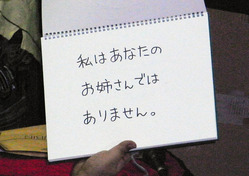 私はあなたの
お姉さんでは
ありません。